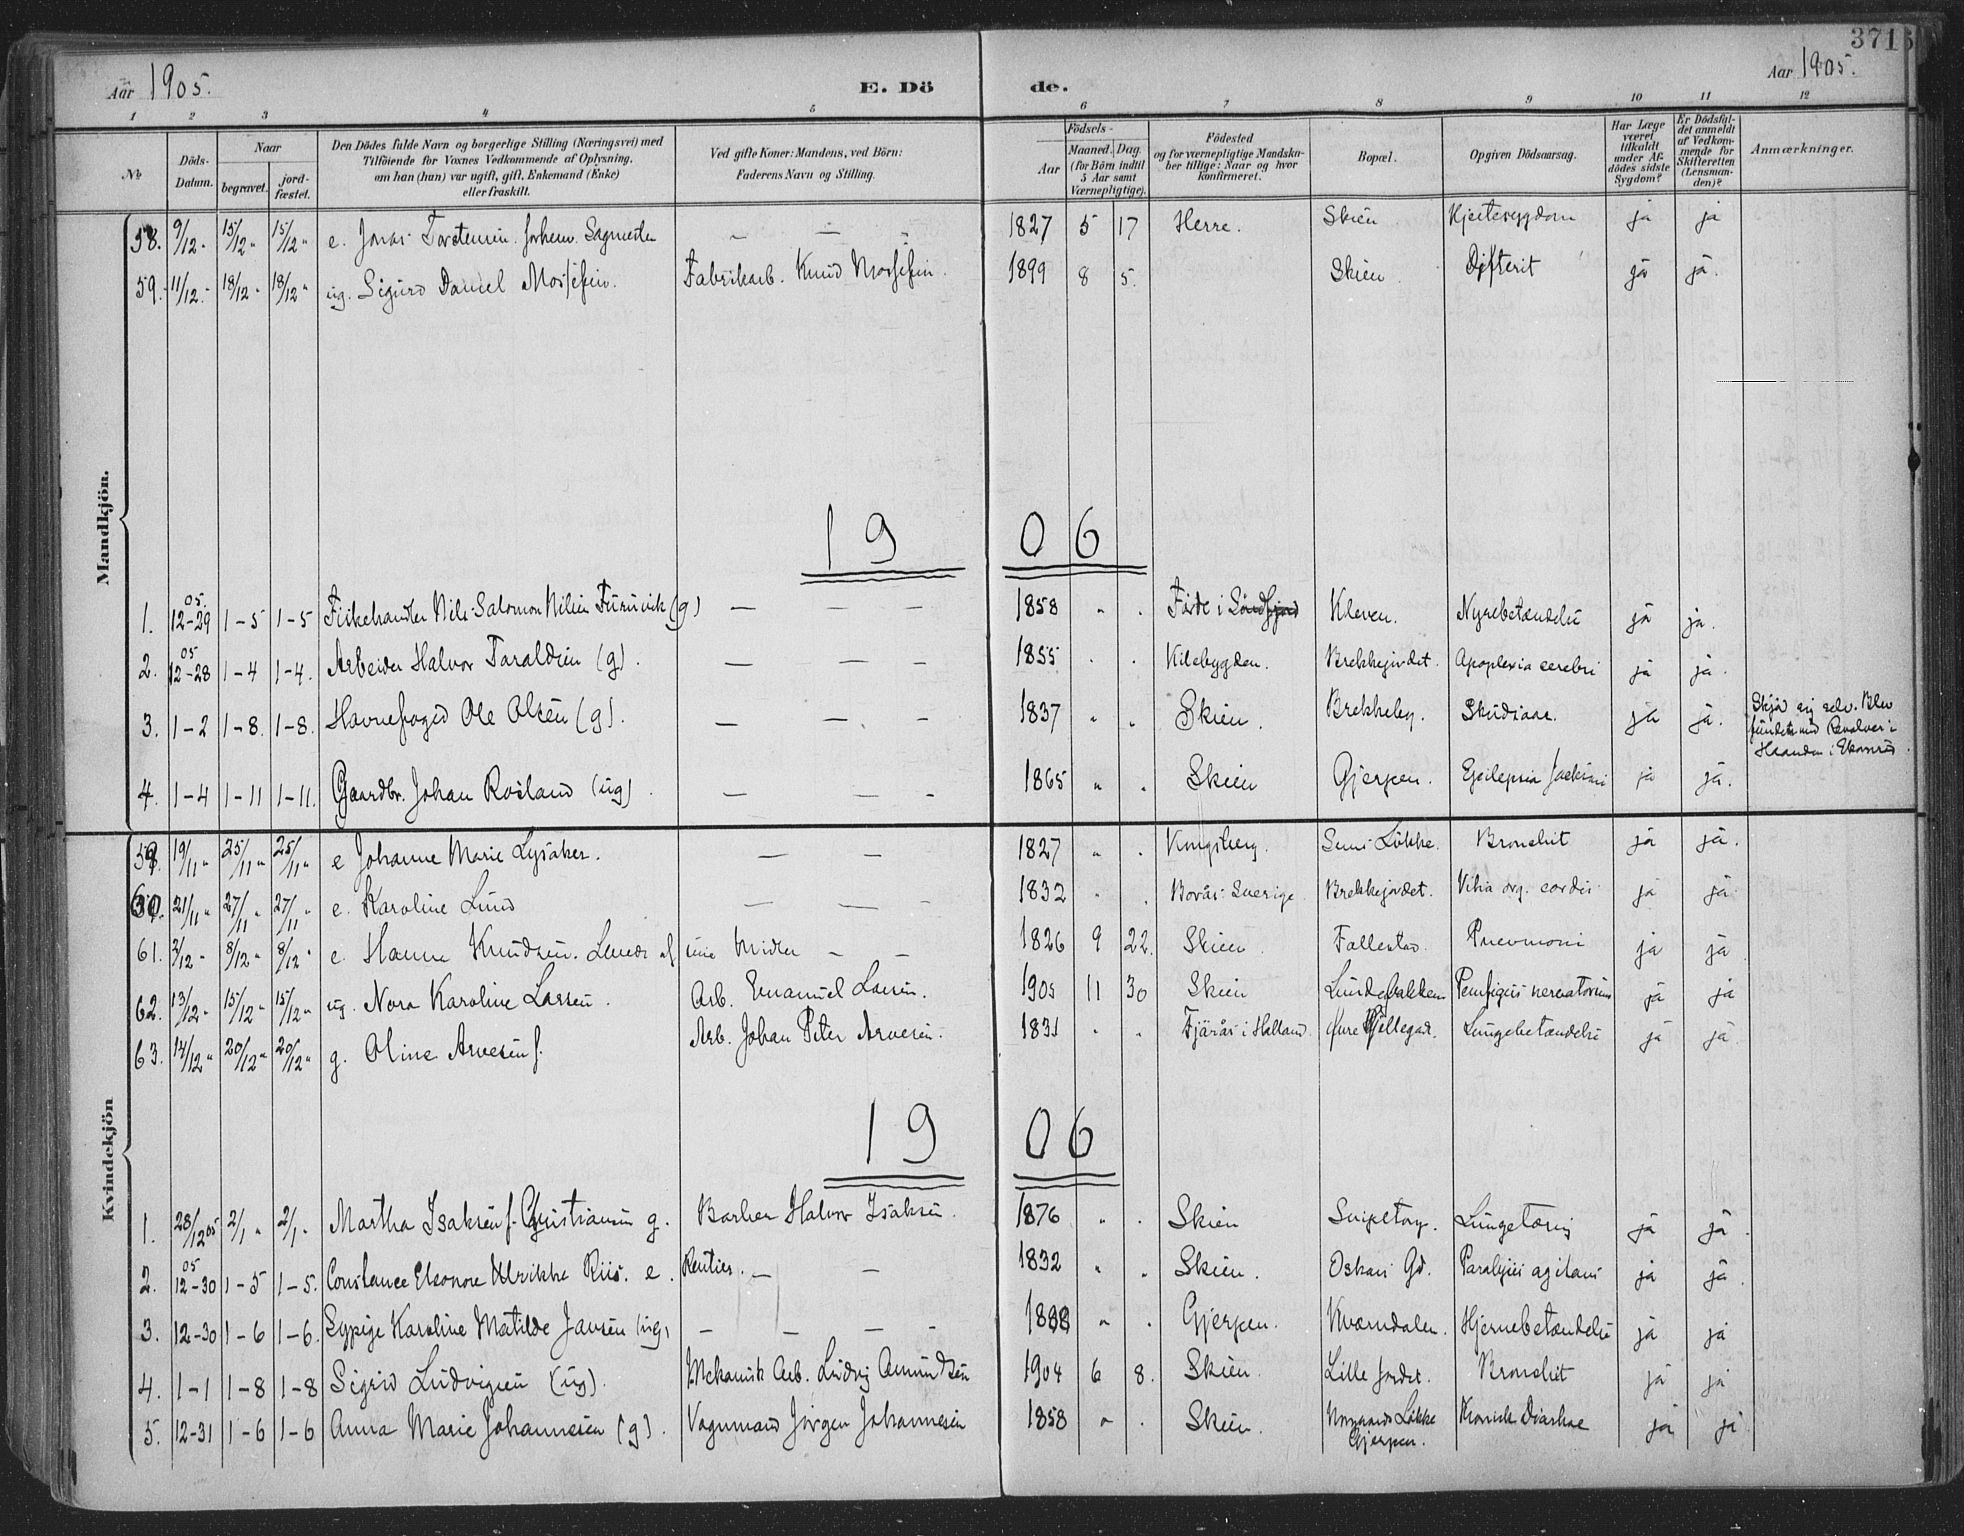 3716
Aar 1905. E. Dö de. Aar 1905.
1 2 3 4 5 6 7 8 9 10 11 12
No Döds-Datum. Naar begravet. jord-fæstet. Den Dödes fulde Navn og borgerlige Stilling (Næringsvei) med Tilföiende for Voxnes Vedkommende af Oplysning, om han (hun) var ugift, gift, Enkemand (Enke) eller fraskilt. Ved gifte Koner: Mandens, ved Börn: Faderens Navn og Stilling. Födsels- Aar Maaned. Dag. (for Börn indtil 5 Aar samt Værnepligtige). Födested og for værnepligtige Mandskaber tillige: Naar og hvor konfirmeret. Bopæl. Opgiven Dödsaarsag. Har Læge været tilkaldt under Afdödes sidste Sygdom? Er Dödsfaldet anmeldt af Vedkommende for Skifteretten (Lensmanden)? Anmærkninger.
Mandkjön.
58. 9/12 15/12 15/12 e. Jonas Torstensen. forhenv. Sagmester — — 1827 5 17 Herre. Skien Hjertesygdom ja ja
59. 11/12 18/12 18/12 ug. Sigurd Daniel Mosfsefin. Fabrikarb. Knud 1899 8 5. Skien Difterit ja ja.
19 06
1. 05. 12-29 1-5 1-5 Fiskehandler Nils Salomon Nilsen Furuvik (g) — — — 1858 " . Förde i Söndfjord Kleven. Nyrebetændelse ja ja.
2. 05 12-28 1-4 1-4. Arbeider Halvor Taraldsen (g). — — — 1855 . . Kilebygden. Brekkejordet. Apoplexia cerebri ja ja.
3. 1-2 1-8. 1-8. Havnefoged Ole Olsen (g). — — — 1837 " . Skien. Brekkeby. Skudsaar. ja ja. Skjöd sig selv. Blev fundet med Revolver i Haanden i
4. 1-4 1-11 1-11. Gaardbr. Johan Rosland (ug). — — - 1865 " . Skien Gjerpen. Epilepsia ja ja.
Kvindekjön
59. 19/11 25/11 25/11 e Johanne Marie Lysaker. — — 1827 " . Kongsberg. Sems Lökke. Bronchit ja ja.
60. 21/11 27/11 27/11 e. Karoline Lund — — - 1832 . . Borås Sverige. Brekkejordet. Vitia org. cordis ja ja
61. 3/12 8/12 8/12 e. Hanna Knudsen. Levede af sine Midler - - 1826 9 22. Skien. Follestad. Pnevmoni ja ja
62. 13/12 15/12 15/12 ug. Nora Karoline Larsen. Arb. Emanuel Larsen. 1905 11 30 Skien Lundebakken Pemfigus neonatorum ja ja
63. 14/12 20/12 20/12 g. Oline Arvesen f. Arb. Johan Peter Arvesen. 1831 . . Fjärås i Halland. Övre Hjellegad. Lungebetændelse ja ja
19 06
1. 28/12 05 2/1 2/1 Martha Isaksen f. Christiansen g. Barber Halvor Isaksen. 1876 " . Skien Snipetorp. Lungetæring ja ja
2. 05 12-30 1-5 1-5. Constance Eleonore Ulrikke Riis. e. Rentier. — — 1832 " . Skien. Oskars Gd. Paralysis agitans ja ja.
3. 12-30 1-6 1-6. Sypige Karoline Matilde Jansen (ug) — — — - 1888 " . Gjerpen. Kværndalen. Hjernebetændelse ja ja
4. 1-1 1-8 1-8 Sigrid Ludvigsen (ug). Mekanisk Arb. Ludvig Amundsen 1904 6 8. Skien. Lille jordet. Bronchit ja ja
5. 12-31 1-6 1-6 Anna Marie Johannesen (g). Vognmand Jörgen Johannesen 1858 " . Skien. Lökke Gjerpen. Kronisk Diarhoe ja ja